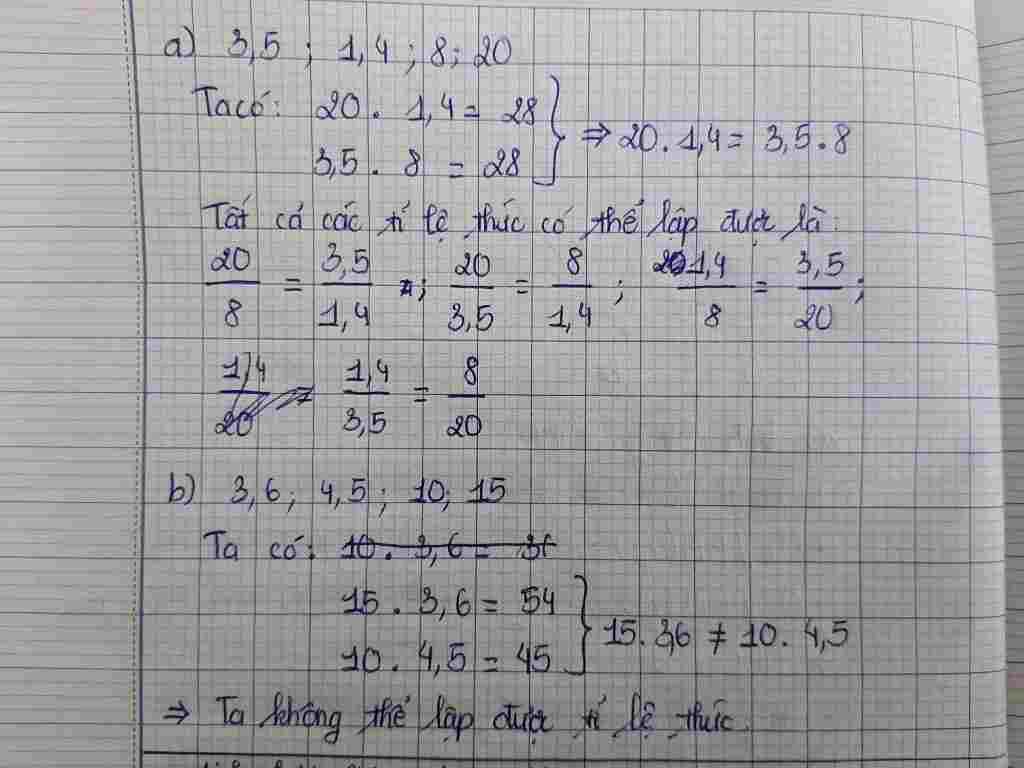 a) 3,5 ; 1,4 ; 8 ; 20
Ta có: 20 . 1,4 = 28
3,5 . 8 = 28
⇒ 20 . 1,4 = 3,5 . 8
Tất cả các tỉ lệ thức có thể lập được là:
20/8 = 3,5/1,4 ; 20/3,5 = 8/1,4 ; 1,4/8 = 3,5/20 ;
1,4/20 = 1,4/3,5 = 8/20
b) 3,6 ; 4,5 ; 10 ; 15
Ta có: 10 . 3,6 =
15 . 3,6 = 54
10 . 4,5 = 45
15 . 3,6 ≠ 10 . 4,5
⇒ Ta không thể lập được tỉ lệ thức.